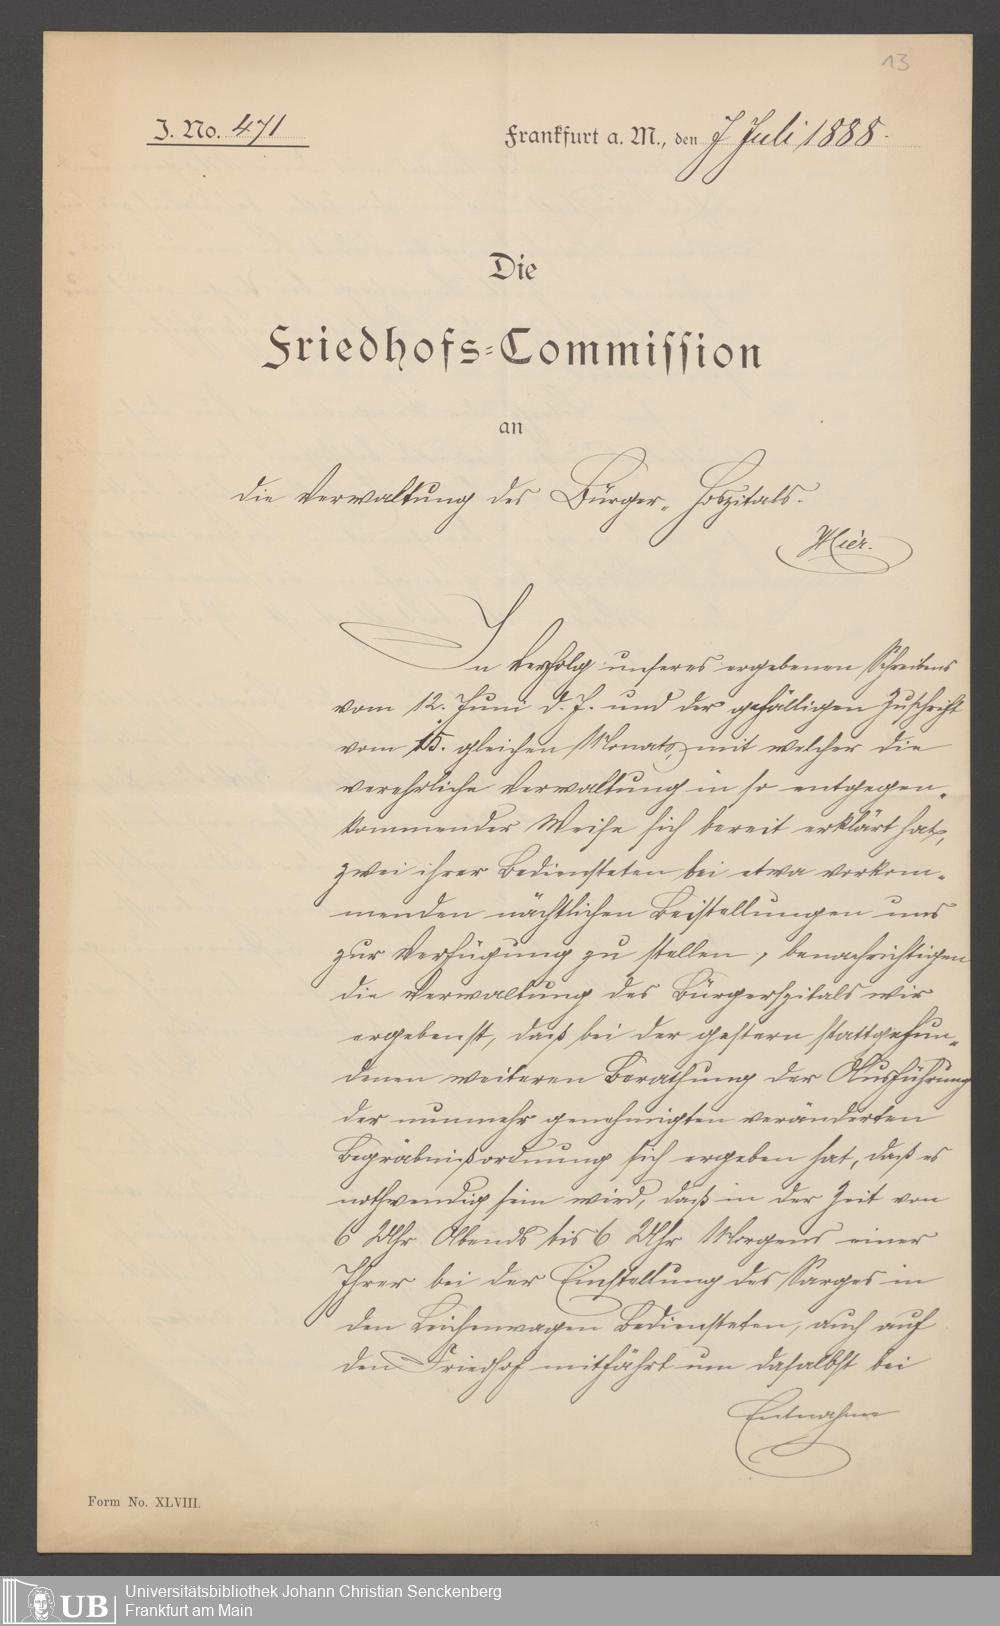 13
J. No. 471
Frankfurt a. M., den 7 Juli 1888.
Die
Friedhofs-Commission
an
die Verwaltung des Bürger-Hospitals.
Hier.
In Verfolg unseres ergebenen Schreibens
vom 12. Juni d. J. und der gefälligen Zuschrift
vom 15. gleichen Monats, mit welcher die
verehrliche Verwaltung in so entgegen-
kommender Weise sich bereit erklärt hat,
zwei ihrer Bediensteten bei etwa vorkom-
menden nächtlichen Beistellungen uns
zur Verfügung zu stellen, benachrichtigen
die Verwaltung des Bürgerspitals wir
ergebenst, daß bei der gestern stattgefun-
denen weiteren Berathung der Ausführung
der nunmehr genehmigten veränderten
Begräbnißordnung sich ergeben hat, daß es
nothwendig sein wird, daß in der Zeit von
6 Uhr Abends bis 6 Uhr Morgens einer
Ihrer bei der Einstellung des Sarges in
den Leichenwagen Bediensteten, auch auf
den Friedhof mitfährt um daselbst bei
Entnahme
Form No. XLVIII.
UB
Universitätsbibliothek Johann Christian Senckenberg
Frankfurt am Main